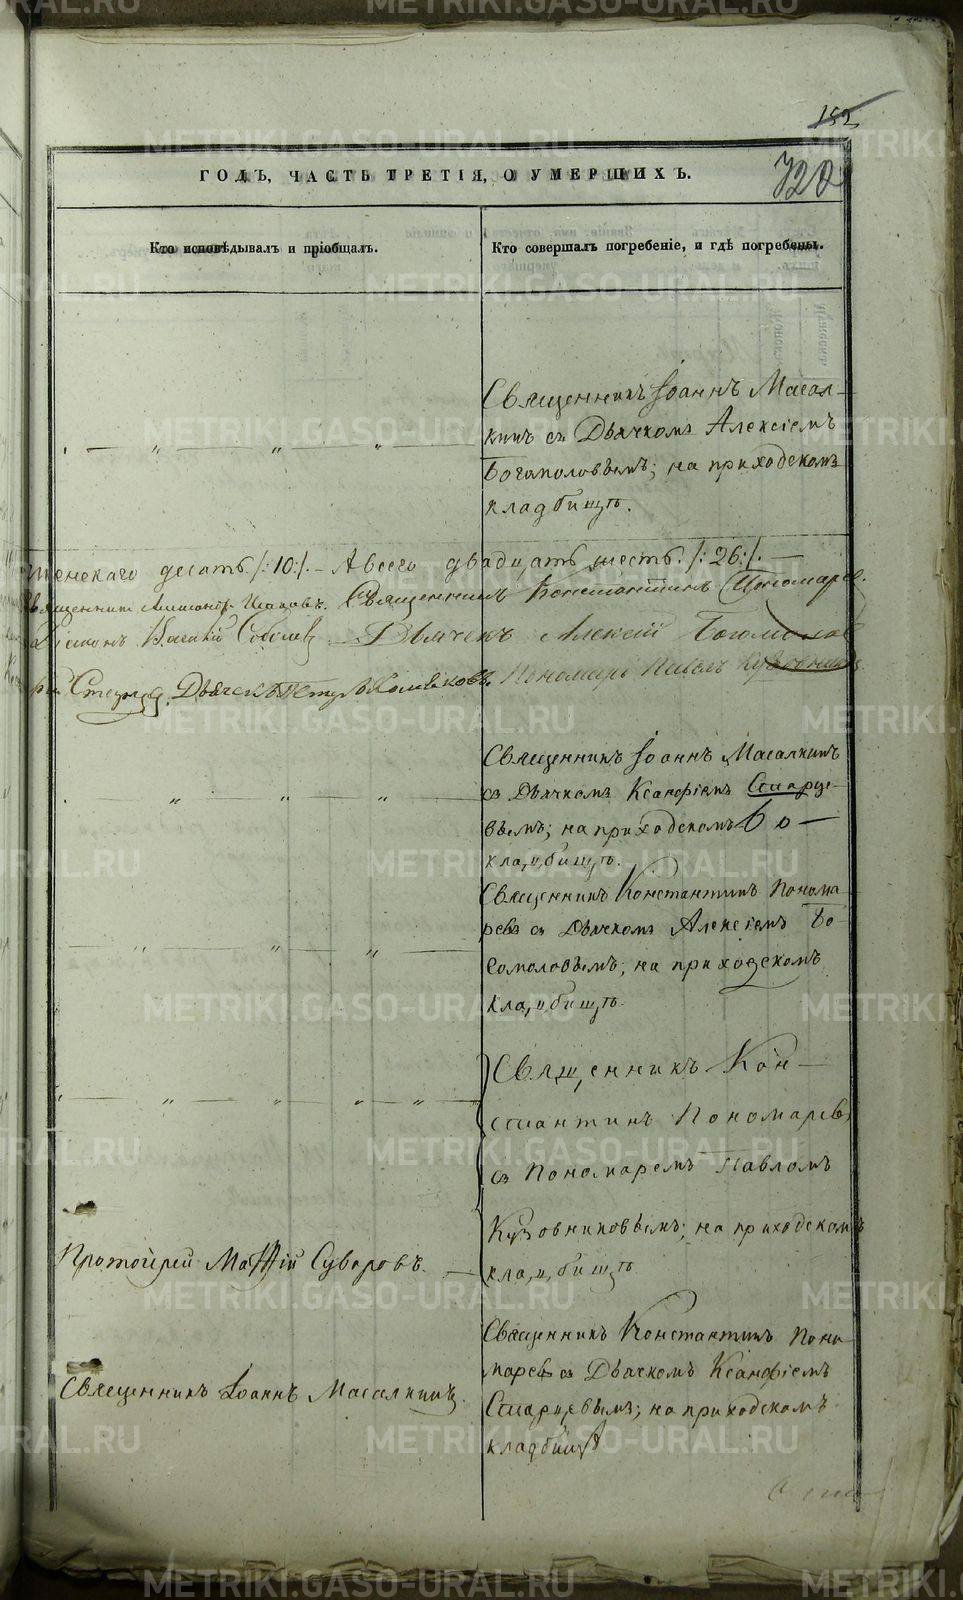 152
720
ГОДЪ, ЧАСТЬ ТРЕТІЯ, О УМЕРШИХЪ.
Кто исповѣдывалъ и пріобщалъ.
Кто совершалъ погребеніе, и гдѣ погребены.
Священникъ Іоаннъ Масал-
кинъ съ Дьячкомъ Алексіемъ
Богомоловымъ; на приходскомъ
кладбищѣ.
женскаго десять /:10:/. – А всего двадцать шесть. /:26:/. –
Священникъ Константинъ Пономарев
Діаконъ Соболевъ Дьячекъ Алексій Богомолов
Дьячекъ Петръ Пономарь Павелъ Кузовников
Священникъ Іоаннъ Масалкинъ
съ Дьячкомъ Ксанфіемъ Старце-
вымъ; на приходскомъ
кладбищѣ.
Священникъ Константинъ Понома
ревъ съ Дьячкомъ Алексіемъ Бо-
гомоловымъ; на приходскомъ
кладбищѣ.
Священникъ Кон-
стантинъ Пономаревъ
съ Пономаремъ Павломъ
Кузовниковымъ; на приходскомъ
Протоіерей Матѳій Суворовъ.
кладбищѣ
Священникъ Константинъ Поно
маревъ съ Дьячкомъ Ксанфіемъ
Священникъ Іоаннъ Масалкинъ.
Старцевымъ; на приходскомъ
кладбищѣ
METRIKI.GASO-URAL.RU